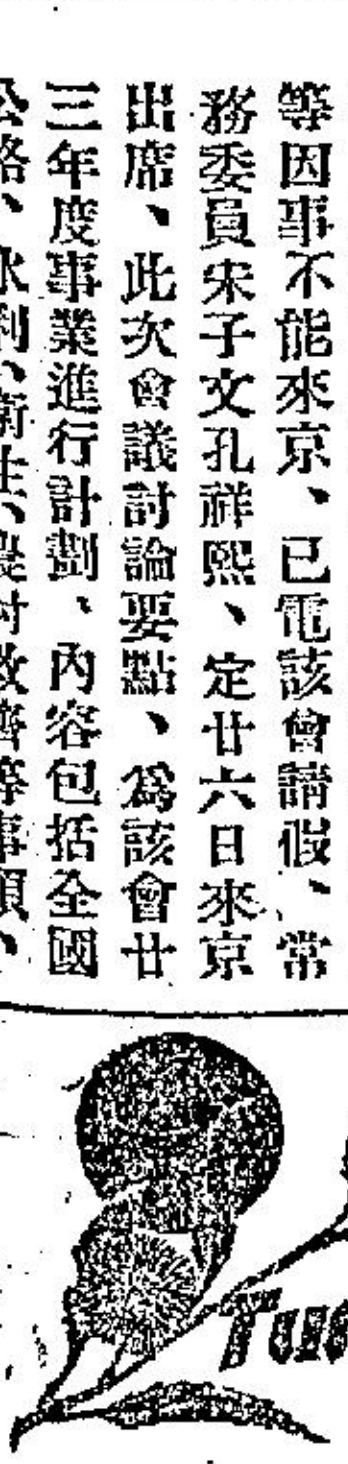 等因事不能來京、已電該會請假、常
務委員宋子文孔祥熙、定廿六日來京
出席、此次會議討論要點、爲該會廿
三年度事業進行計劃、內容包括全國
公路、水利、衛生、農村救濟等事項、